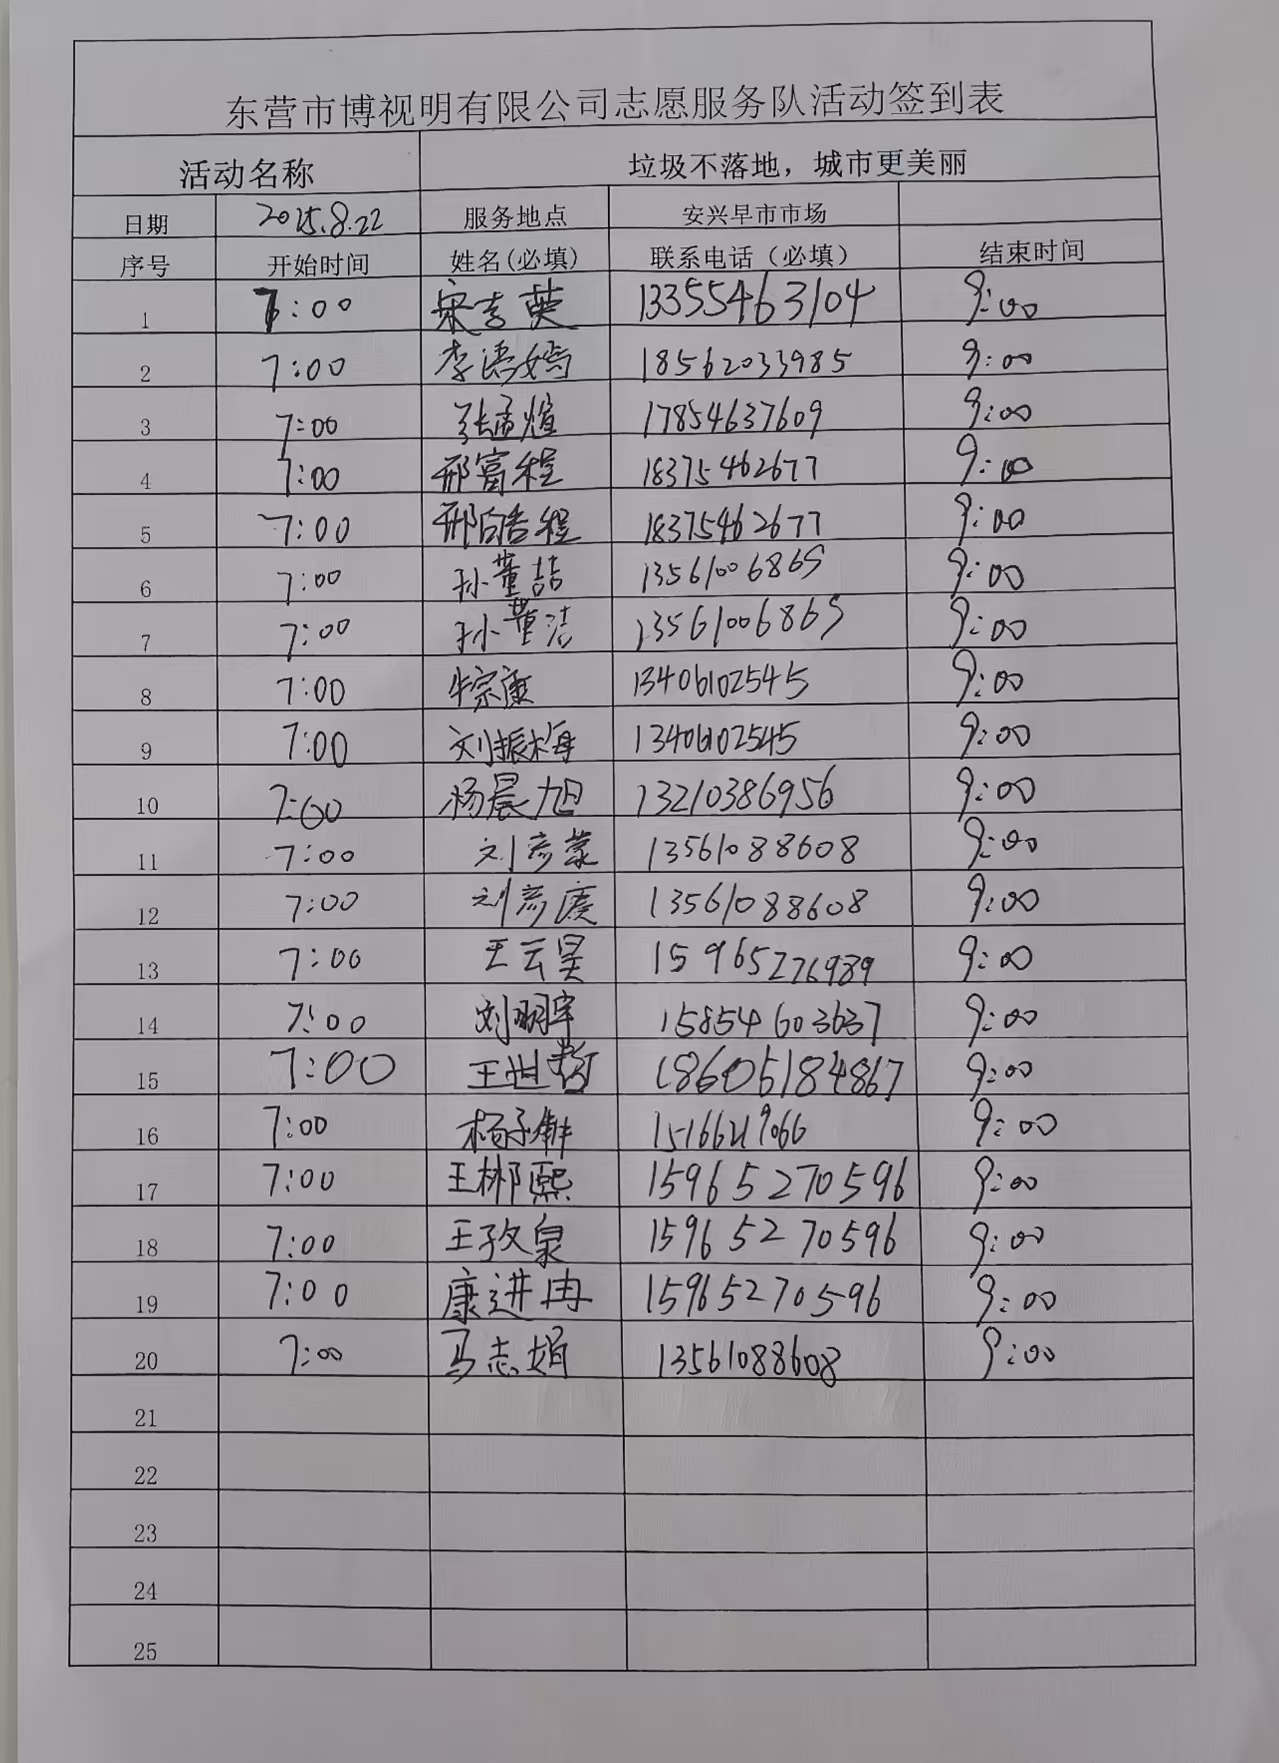 东营市博视明有限公司志愿服务队活动签到表
活动名称 垃圾不落地，城市更美丽
日期 2025.8.22 服务地点 安兴早市市场
序号 开始时间 姓名(必填) 联系电话（必填） 结束时间
1 7:00 宋吉英 13355463104 9:00
2 7:00 李语嫣 18562033985 9:00
3 7:00 张孟煊 17854637609 9:00
4 7:00 邢富程 18375462677 9:00
5 7:00 邢皓程 18375462677 9:00
6 7:00 孙董喆 13561006865 9:00
7 7:00 孙董洁 13561006865 9:00
8 7:00 牛宗康 13406102545 9:00
9 7:00 刘振梅 13406102545 9:00
10 7:00 杨晨旭 13210386956 9:00
11 7:00 刘彦蒙 13561088608 9:00
12 7:00 刘彦 13561088608 9:00
13 7:00 王云昊 15965276989 9:00
14 7:00 刘明宇 15854603637 9:00
15 7:00 王世哲 18605184867 9:00
16 7:00 杨子 9:00
17 7:00 王彬熙 15965270596 9:00
18 7:00 王孜泉 15965270596 9:00
19 7:00 康进冉 15965270596 9:00
20 7:00 马志娟 13561088608 9:00
21
22
23
24
25